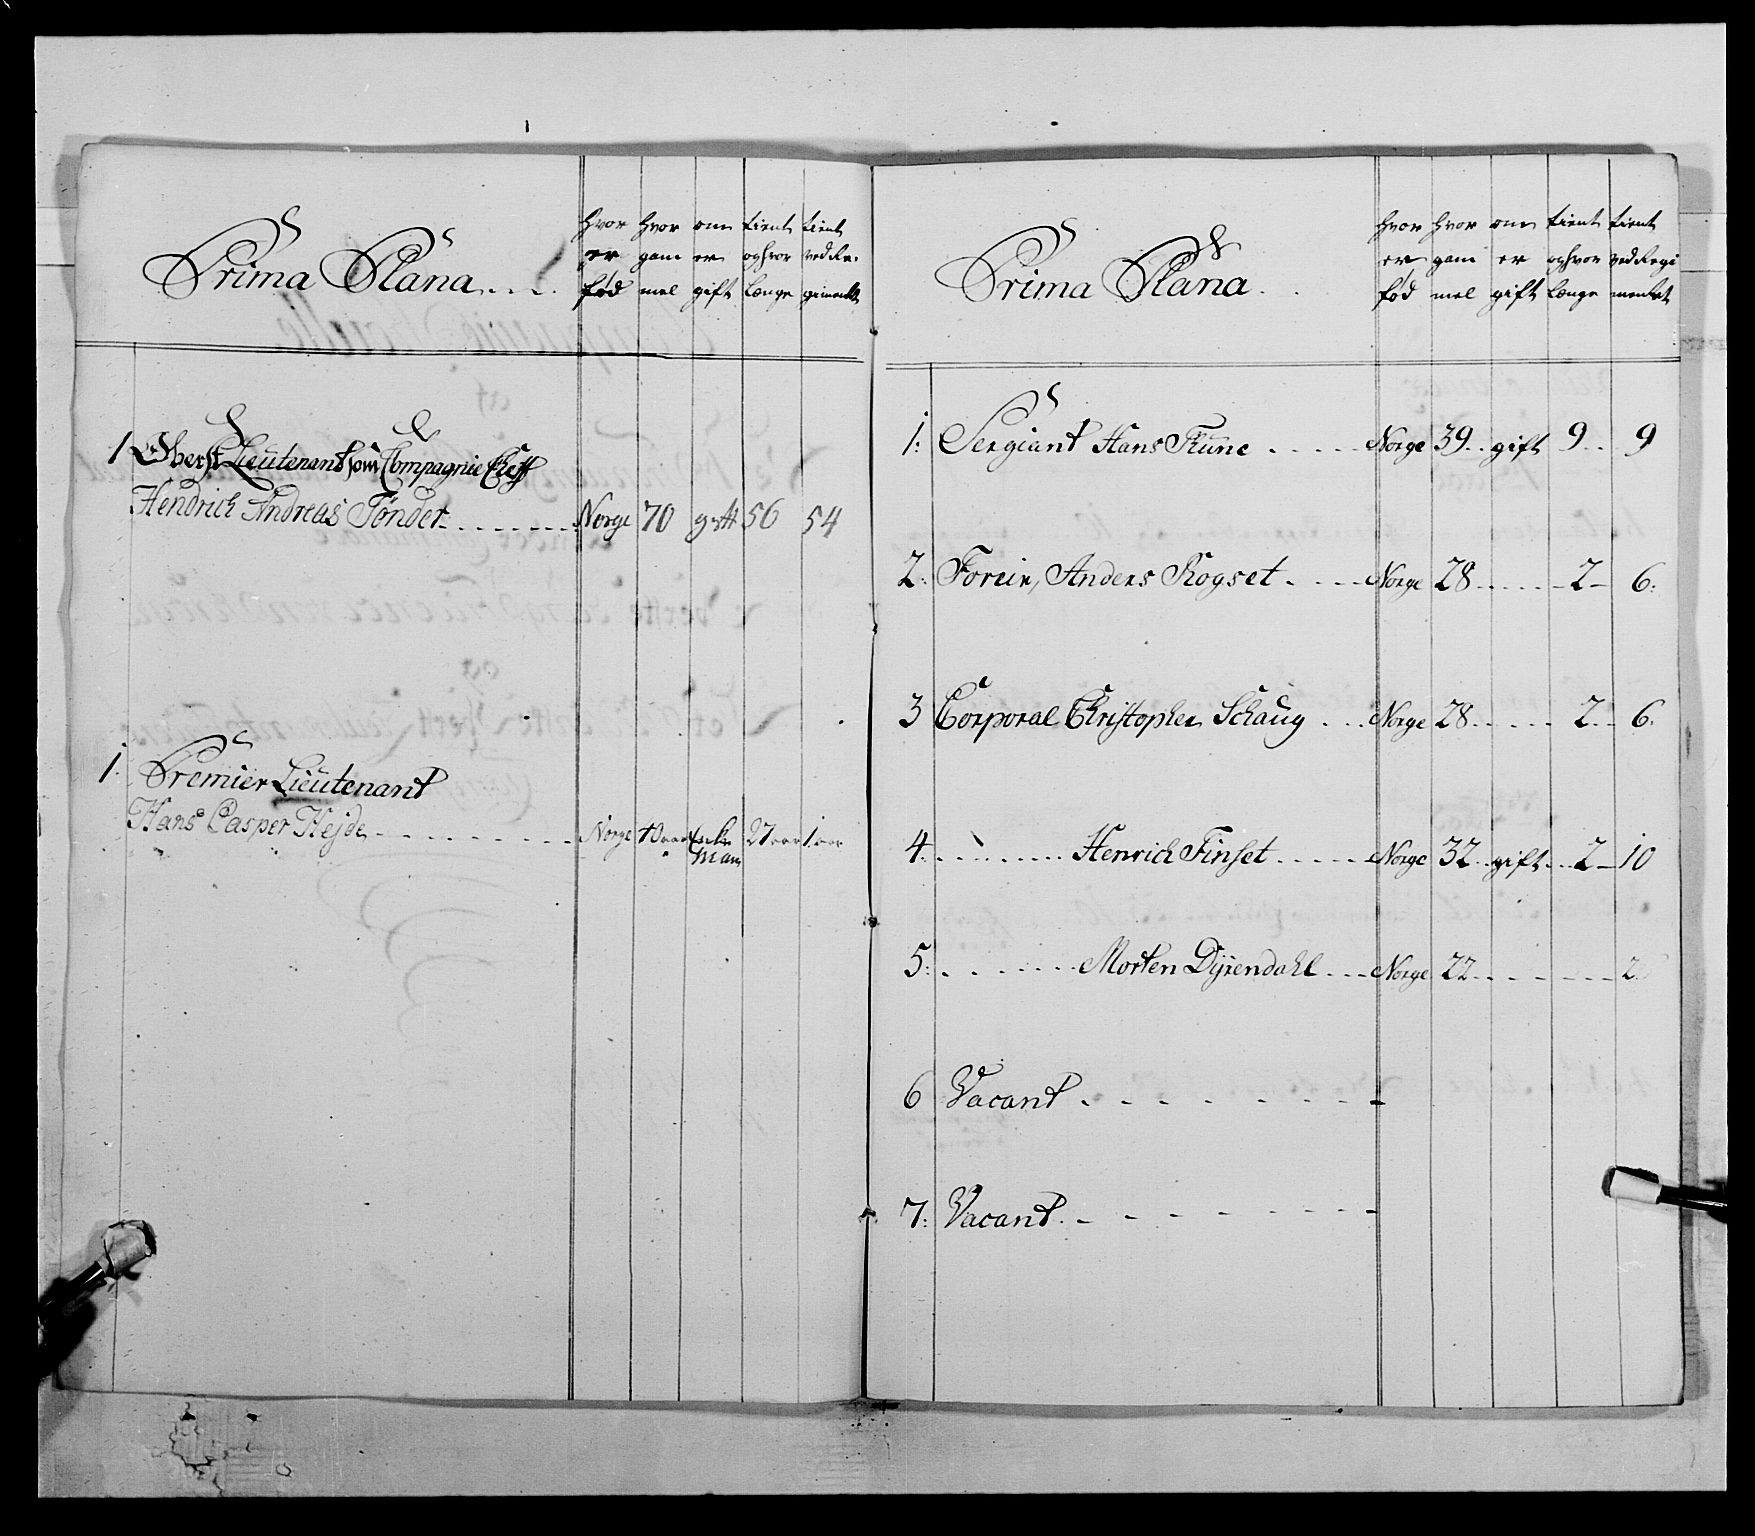 Prima Plana
hvor er fød
hvor gam mel
om er gift
tient og hvor længe
tient ved Re= gimentet
1 Oberst Lieutenant som Compagnie Cheff
Hendrich Andreas Tønder Norge 70 gift 56 54
1. Premier Lieutenant
Hans Casper Hejde Norge Enke Mand 27 aar 1 aar
Prima Plana
hvor er fød
hvor gam mel
om er gift
tient og hvor længe
tient ved Regi mentet
1: Sergiant Hans Rune Norge 39 gift 9 9
2: Forier, Anders Rogset Norge 28 2 6:
3 Corporal Christopher Schaug Norge 28 2 6.
4. Henrich Finset Norge 32 gift 2 10
5: Morten Dÿrendahl Norge 22 2
6 Vacant
7: Vacant